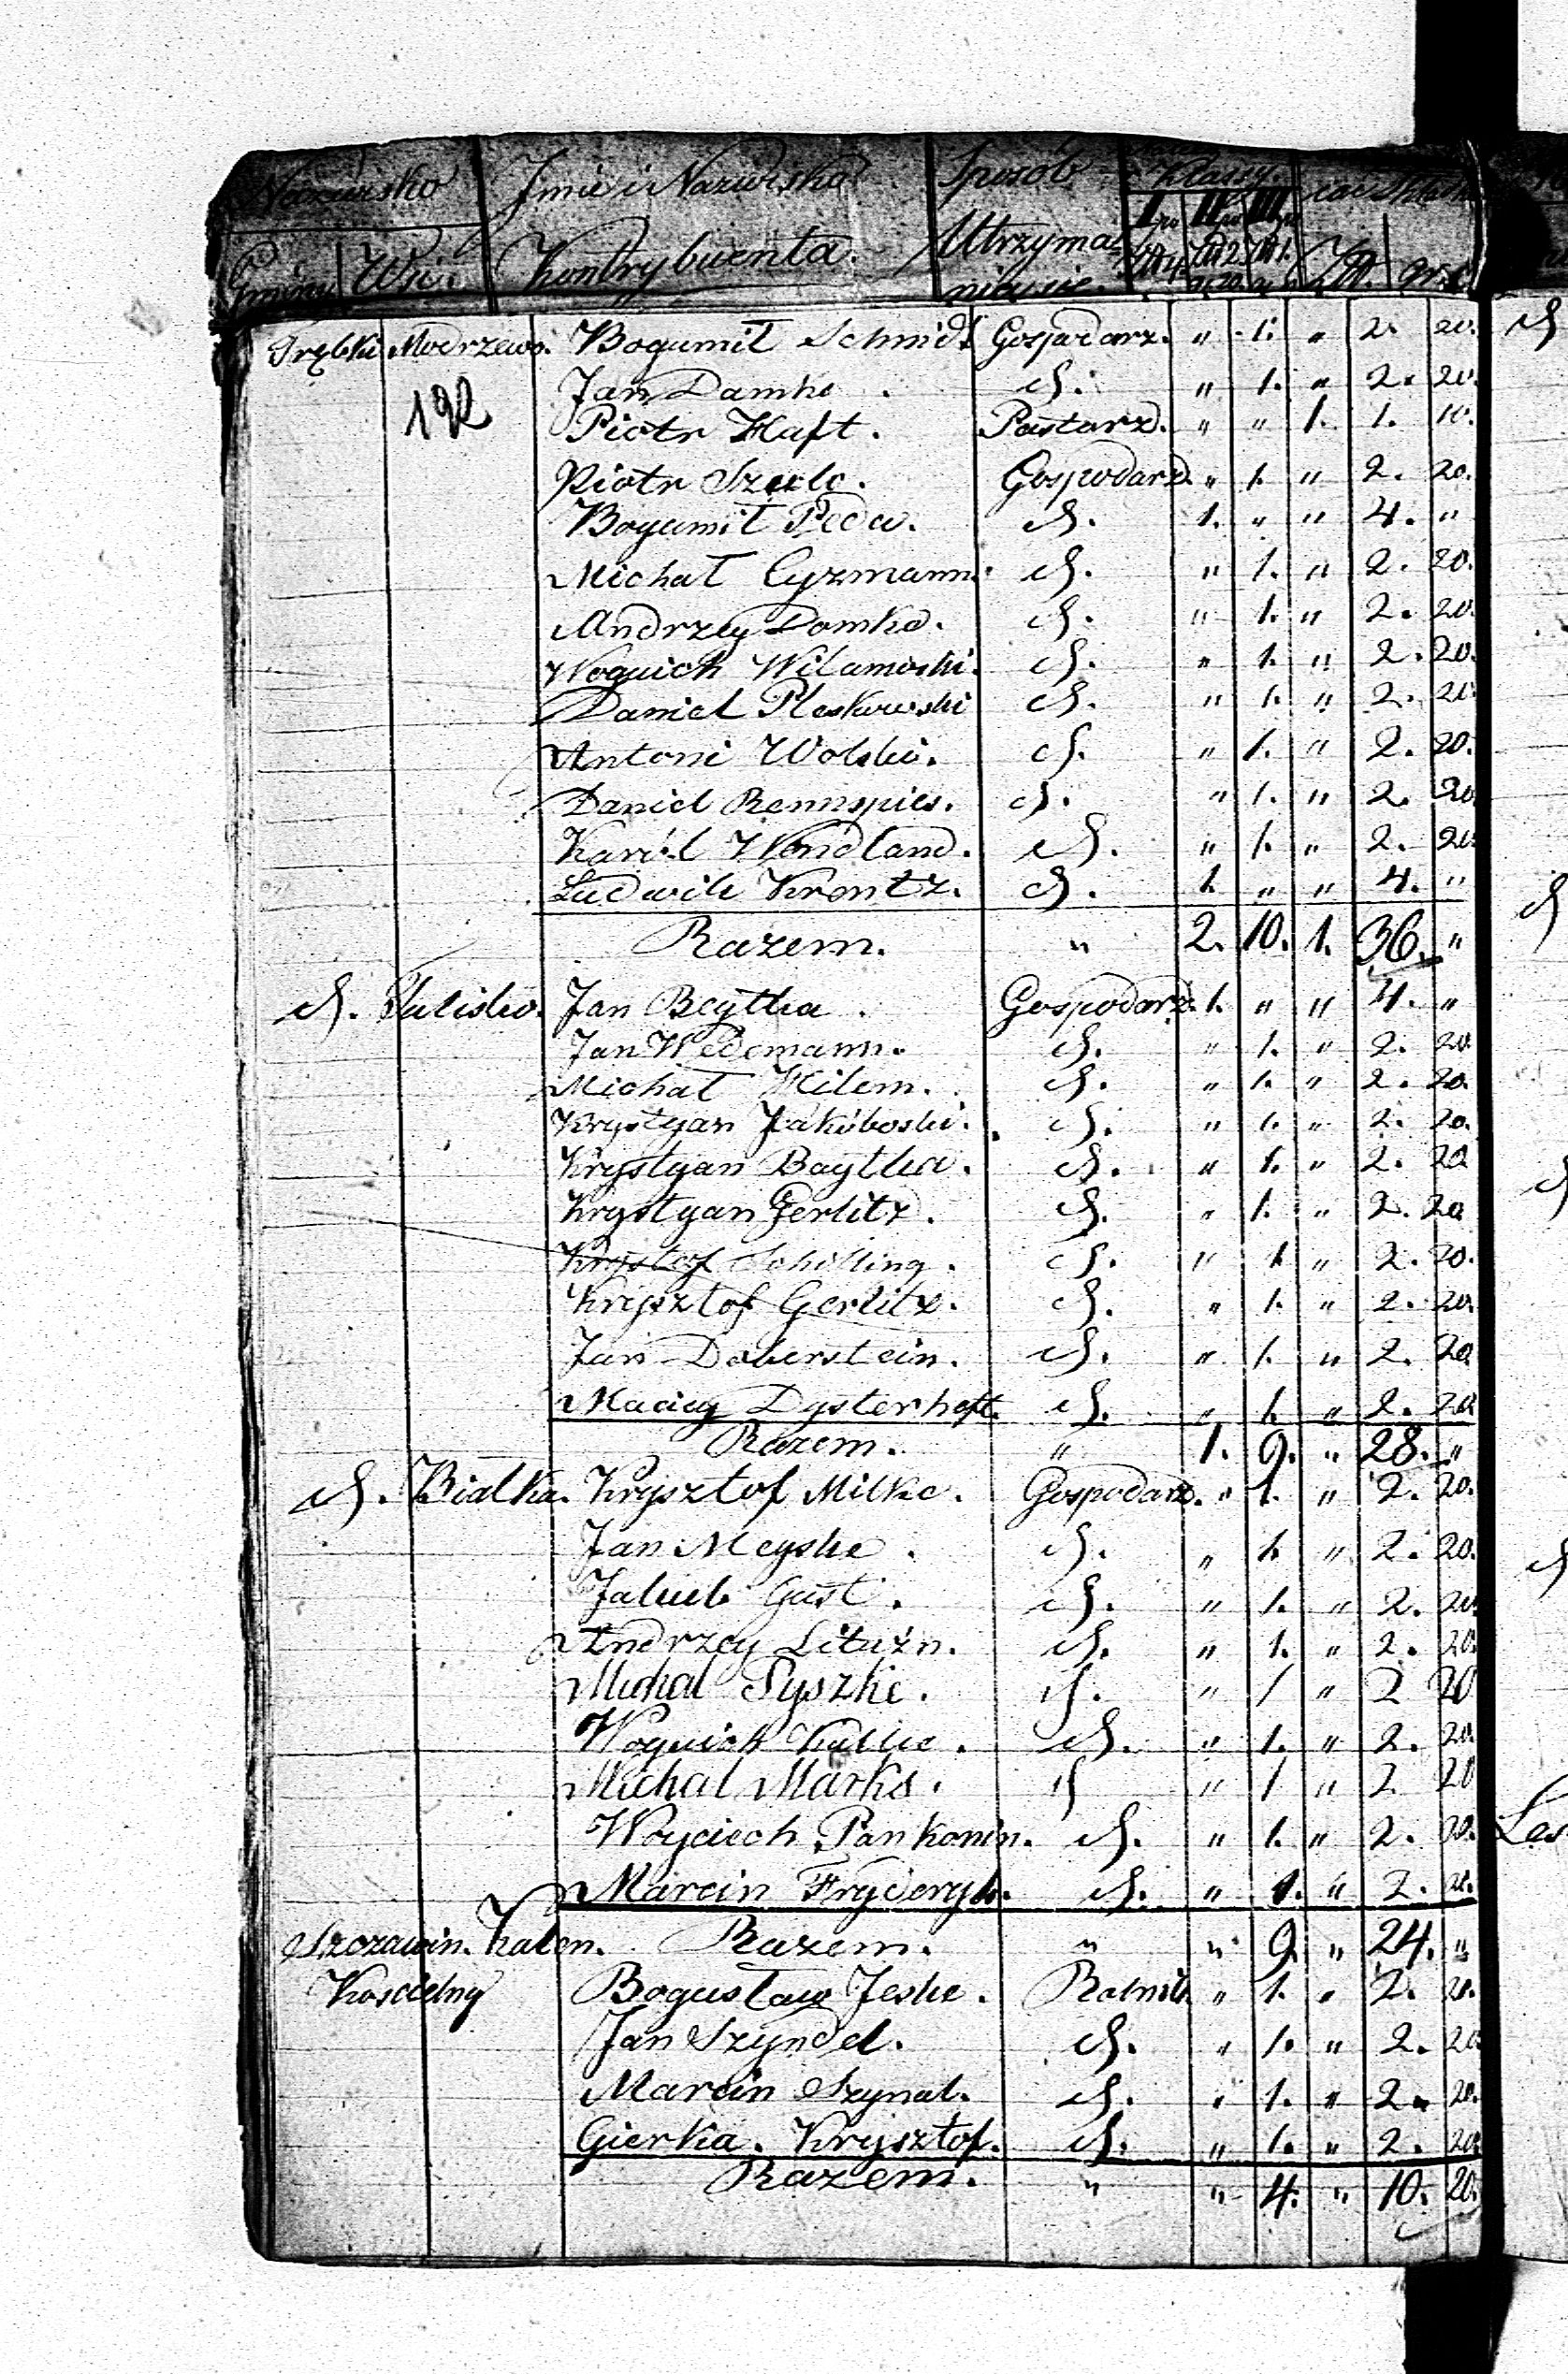 Nazwisko Jmie i Nazwisko Sposób Klassy.
Gminy Wsi. Kontrybuenta. Utrzymania się. I II III Złt. gr.
Trębki Modrzewo. Bogumił Schmidt Gospodarz. " 1. " 2. 20.
192 Jan Damke. d. " 1. " 2. 20.
Piotr Haft. Pastarz. " " 1. 1. 10.
Piotr Szulc. Gospodarz " 1. " 2. 20.
Bogumił Peda. d. 1. " " 4. "
Michał Cyzmann. d. " 1. " 2. 20.
Andrzey Domke. d. " 1. " 2. 20.
Woyciech Wilamoski. d. " 1. " 2. 20.
Daniel Pleskowski d. " 1. " 2. 20.
Antoni Wolski. d. " 1. " 2. 20.
Daniel Rennspies. d. " 1. " 2. 20.
Karól Wendland. d. " 1. " 2. 20.
Ludwik Krentz. d. 1. " " 4. "
Razem. " 2. 10. 1. 36. "
d. Tuliska. Jan Beytka. Gospodarz. 1. " " 4. "
Jan Wedemann. d. " 1. " 2. 20.
Michał Hilem. d. " 1. " 2. 20.
Krystyan Jakóboski. d. " 1. " 2. 20.
Krystyan Baytka. d. " 1. " 2. 20
Krystyan Gerlitz. d. " 1. " 2. 20
Krystof Schilling. d. " 1. " 2. 20.
Krysztof Gerlitz. d. " 1. " 2. 20.
Jan Doberstein. d. " 1. " 2. 20
Maciey Dysterheft. d. " 1. " 2. 20
Razem. " 1. 9. " 28. "
d. Białka. Krysztof Milke. Gospodarz. " 1. " 2. 20.
Jan Meyske. d. " 1. " 2. 20.
Jakub Gust. d. " 1. " 2. 20.
Andrzey Litwin. d. " 1. " 2. 20.
Michał Pyszke. d. " 1 " 2 20
Woyciech d. " 1. " 2. 20.
Michał Marks. d " 1 " 2 20
Woyciech Pankonin. d. " 1. " 2. 20.
Marcin Fryderyk. d. " 1. " 2. 20.
Szczawin. Kalen. Razem. " " 9. " 24. "
Koscielny Bogusław Jeske. Rolnik " 1. " 2. 20.
Jan Szyndel. d. " 1. " 2. 20
Marcin Szynal. d. " 1. " 2. 20.
Gierka. Krysztof. d. " 1. " 2. 20
Razem. " " 4. " 10. 20.